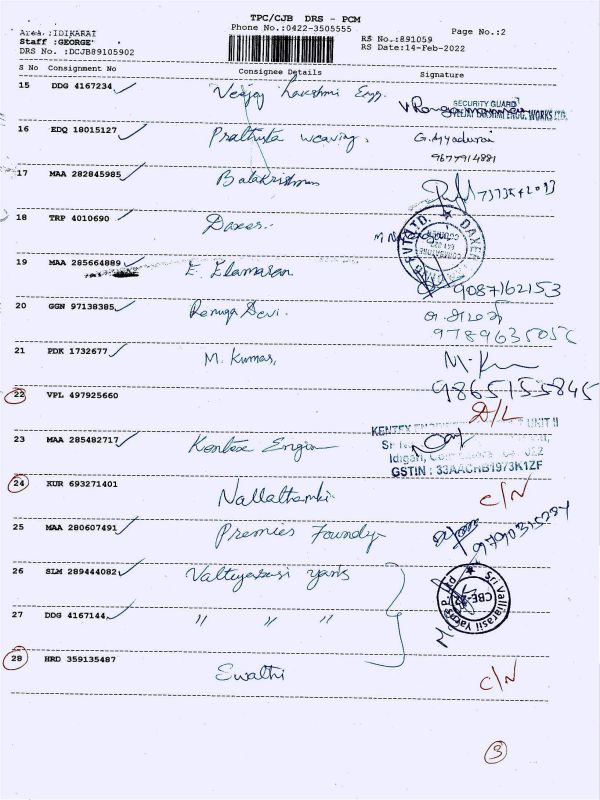 TPC/CJB DRS - PCM
Phone No.:0422-3505555
Page No.:2
Area :IDIKARAI
Staff :GEORGE
DRS No. :DCJB89105902
RS No.:891059
RS Date:14-Feb-2022
S No Consignment No Consignee Details Signature
15 DDG 4167234 Veejay Lakshmi Engg.
SECURITY GUARD
VEEJAY LAKSHMI ENGG. WORKS LTD.
16 EDQ 18015127 Prathista weaving. G. Ayyadurai
9677914881
17 MAA 282845985 Balakrishnan
18 TRP 4010690 Daxer.
19 MAA 285664889 E. Elamaran 9087162153
20 GGN 97138385 Renuga Devi.
21 PDK 1732677 M. Kumar, M. K
9865155845
22 VPL 497925660 D/L
23 MAA 285482717 Kentex Engin
GSTIN : 33AACHB1973K1ZF
24 KUR 693271401 Nallathambi C/N
25 MAA 280607491 Premier Foundry
26 SLM 289444082 Valliyarasi yarns
Sri Valliarasii Yarns P Ltd
27 DDG 4167144 " " "
28 HRD 359135487 Swathi C/N
3